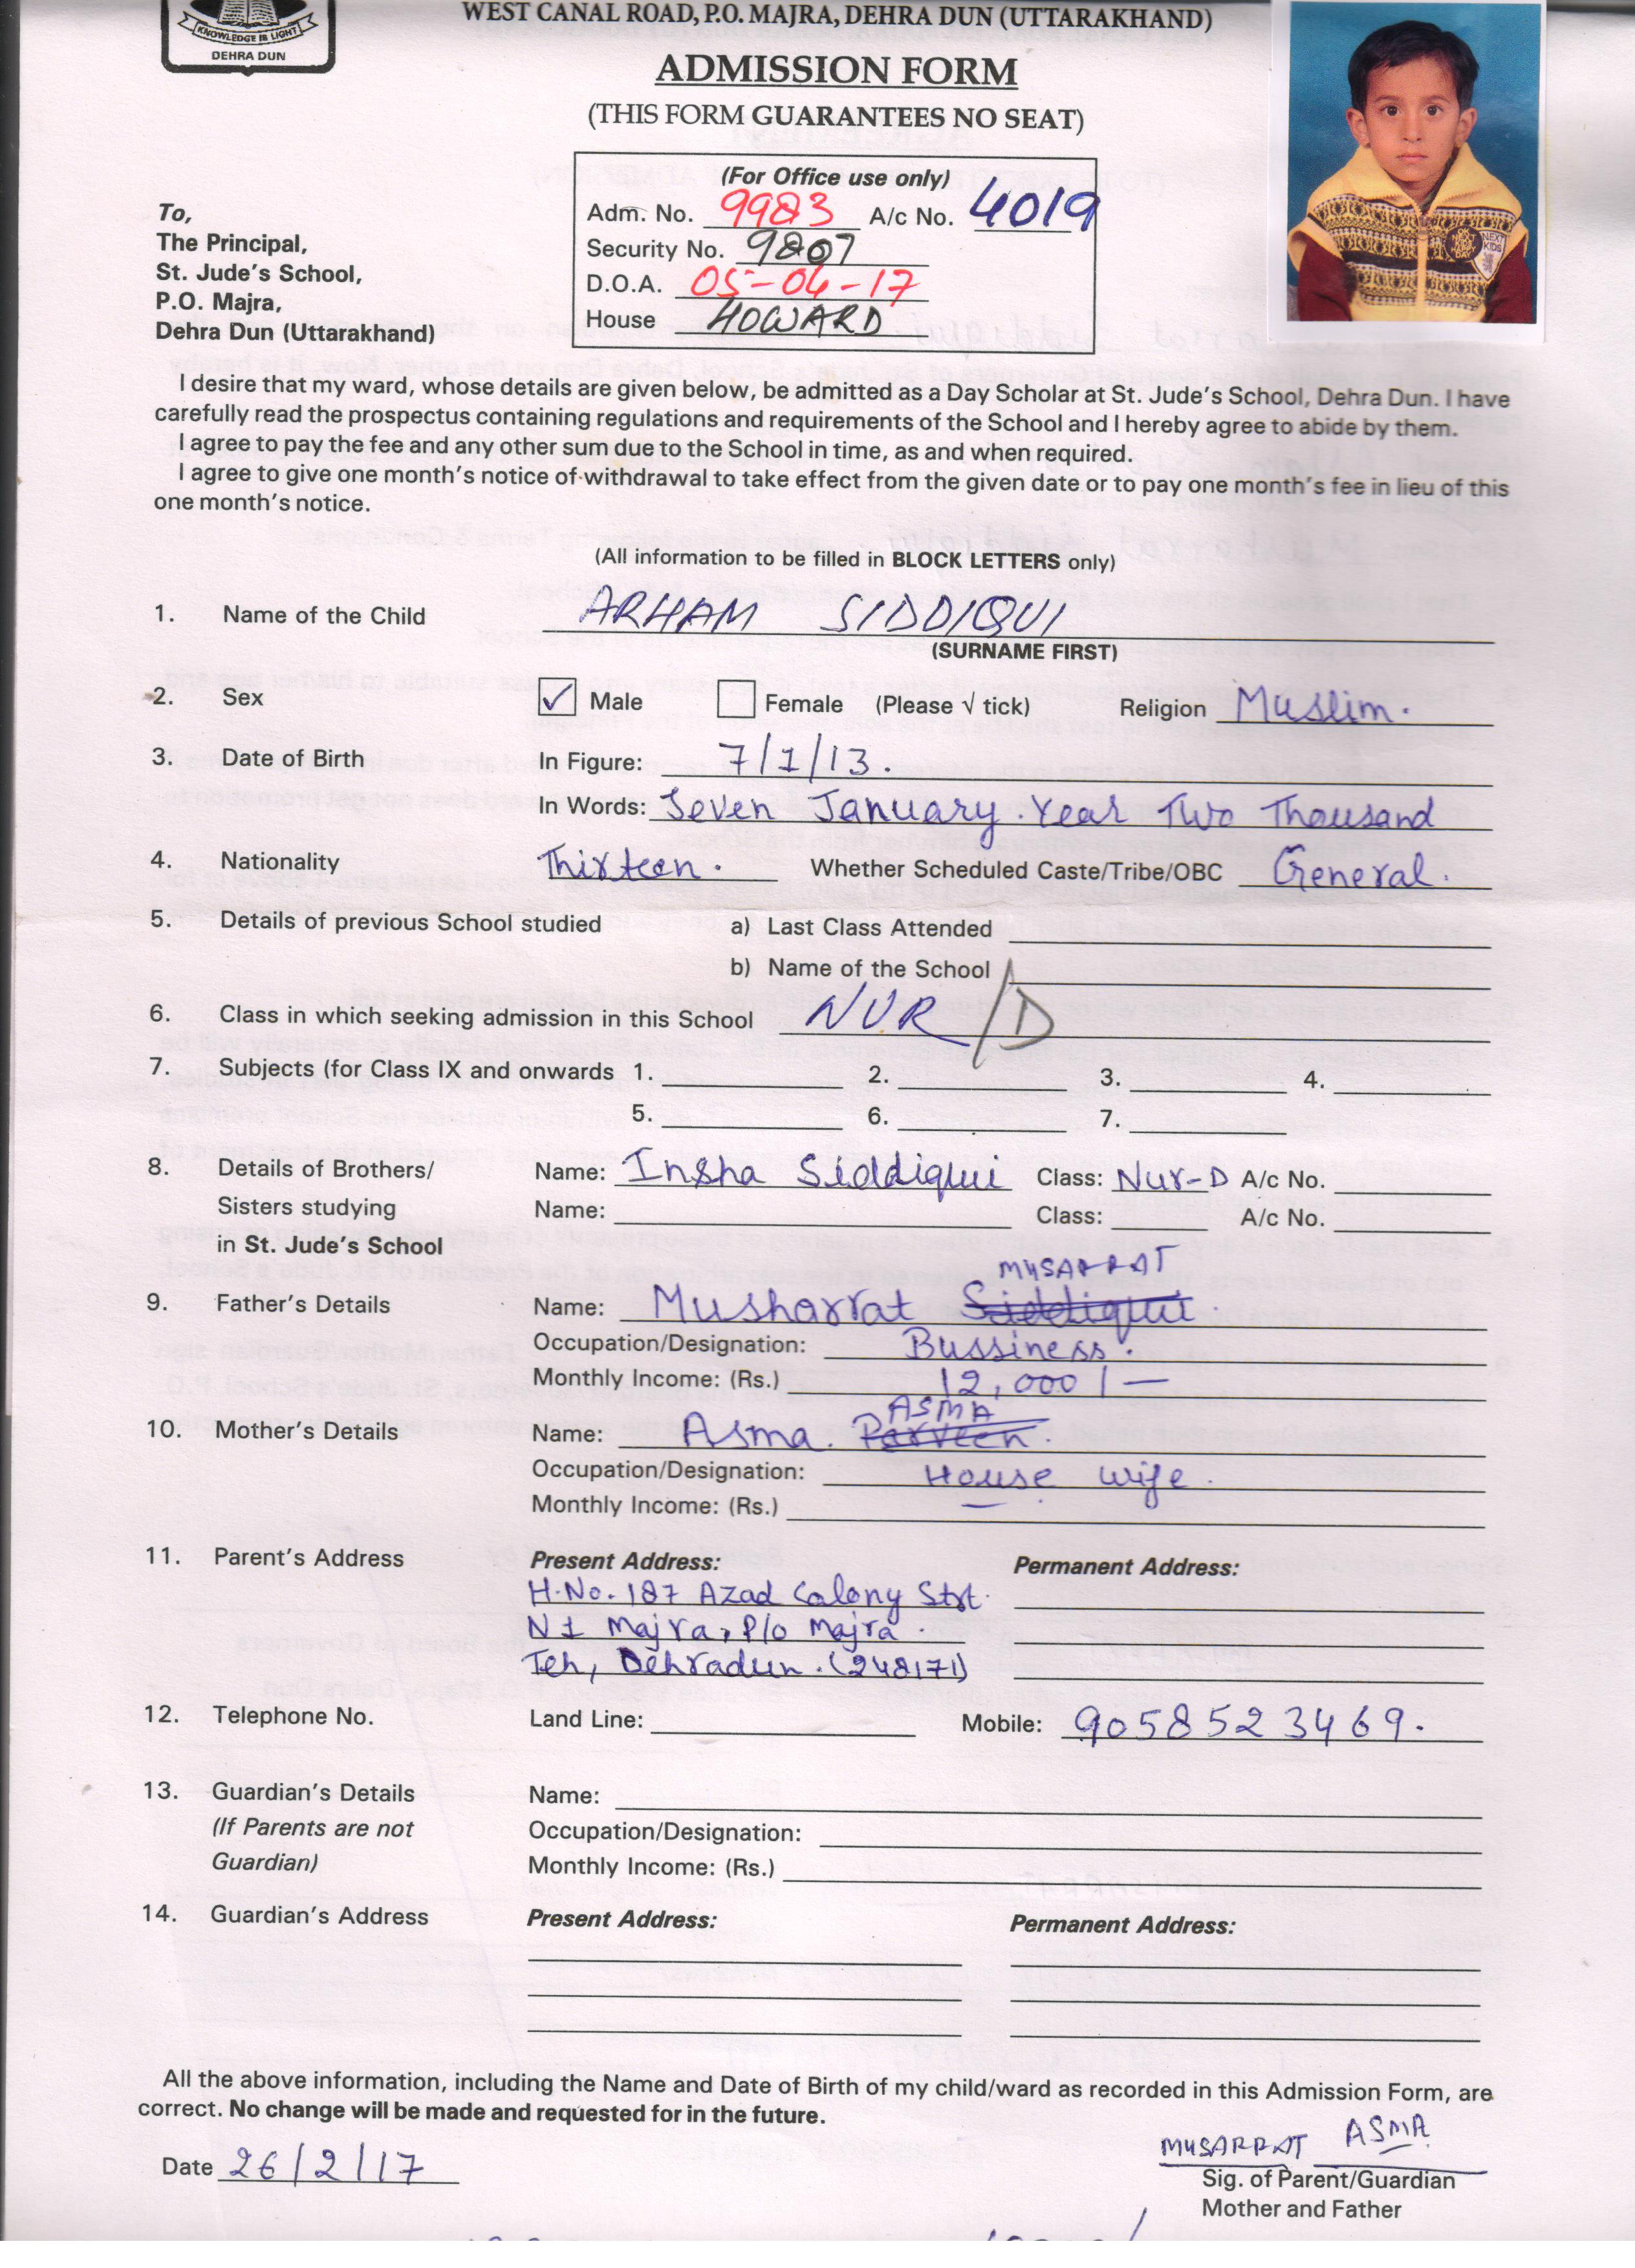 KNOWLEDGE IS LIGHT
DEHRA DUN
WEST CANAL ROAD, P.O. MAJRA, DEHRA DUN (UTTARAKHAND)
ADMISSION FORM
(THIS FORM GUARANTEES NO SEAT)
(For Office use only)
Adm. No. 9983 A/c No. 4019
Security No. 9807
D.O.A. 05-04-17
House HOWARD
NEXT KIDS
To,
The Principal,
St. Jude's School,
P.O. Majra,
Dehra Dun (Uttarakhand)
I desire that my ward, whose details are given below, be admitted as a Day Scholar at St. Jude's School, Dehra Dun. I have
carefully read the prospectus containing regulations and requirements of the School and I hereby agree to abide by them.
I agree to pay the fee and any other sum due to the School in time, as and when required.
I agree to give one month's notice of withdrawal to take effect from the given date or to pay one month's fee in lieu of this
one month's notice.
(All information to be filled in BLOCK LETTERS only)
1. Name of the Child ARHAM SIDDIQUI
(SURNAME FIRST)
2. Sex ✓ Male Female (Please √ tick) Religion Muslim.
3. Date of Birth In Figure: 7/1/13.
In Words: Seven January. Year Two Thousand
4. Nationality Thirteen. Whether Scheduled Caste/Tribe/OBC General.
5. Details of previous School studied a) Last Class Attended
b) Name of the School
6. Class in which seeking admission in this School NUR/D
7. Subjects (for Class IX and onwards 1. 2. 3. 4.
5. 6. 7.
8. Details of Brothers/ Name: Insha Siddiqui Class: Nur-D A/c No.
Sisters studying Name: Class: A/c No.
in St. Jude's School
MUSARRAT
9. Father's Details Name: Musharrat Siddiqui.
Occupation/Designation: Bussiness.
Monthly Income: (Rs.) 12,000/—
ASMA
10. Mother's Details Name: Asma. Parveen.
Occupation/Designation: House wife.
Monthly Income: (Rs.) —
11. Parent's Address Present Address: Permanent Address:
H.No. 187 Azad Colony Strt.
N 1 Majra, P/o Majra.
Teh, Dehradun. (248171)
12. Telephone No. Land Line: Mobile: 9058523469.
13. Guardian's Details Name:
(If Parents are not Occupation/Designation:
Guardian) Monthly Income: (Rs.)
14. Guardian's Address Present Address: Permanent Address:
All the above information, including the Name and Date of Birth of my child/ward as recorded in this Admission Form, are
correct. No change will be made and requested for in the future.
Date 26/2/17 MUSARRAT ASMA
Sig. of Parent/Guardian
Mother and Father